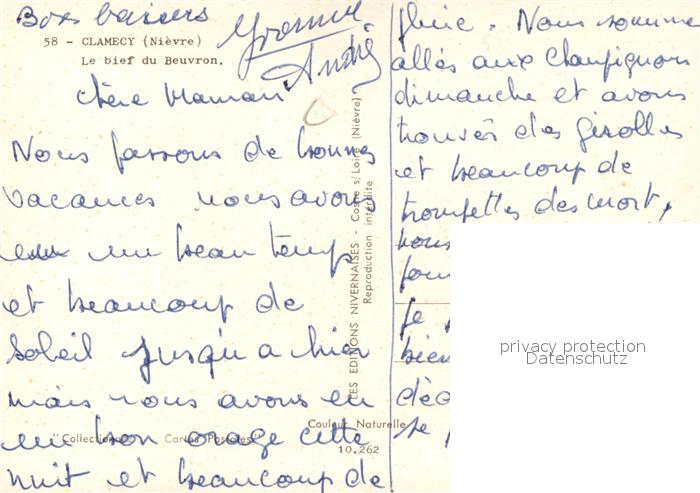 Bons baisers
Yvonne
André
58 - CLAMECY (Nièvre)
Le bief du Beuvron.
Chère Maman
Nous passons de bonnes
vacances nous avons
eu un beau temps
et beaucoup de
soleil jusqu'a hier
mais nous avons eu
un bon orage cette
nuit et beaucoup de
pluie. Nous somme
allés aux champignons
dimanche et avons
trouvés des girolles
et beaucoup de
trompettes des mort,
nous
Je
bien
se
LES EDITIONS NIVERNAISES - Cosne s/Loire (Nièvre)
Reproduction interdite
Couleur Naturelle
"Collection Cartes Postales"
10.262
privacy protection
Datenschutz